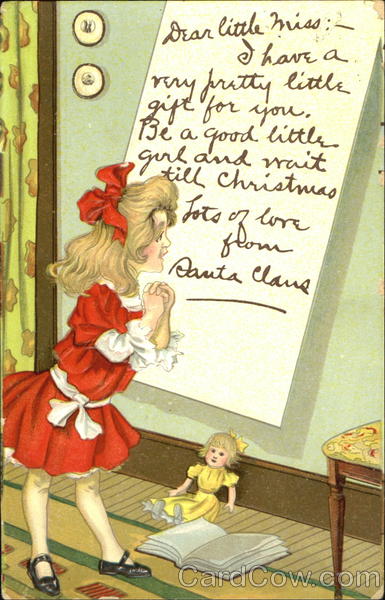 Dear little Miss:—
I have a
very pretty little
gift for you.
Be a good little
girl and wait
till Christmas
Lots of love
from
Santa Claus
CardCow.com